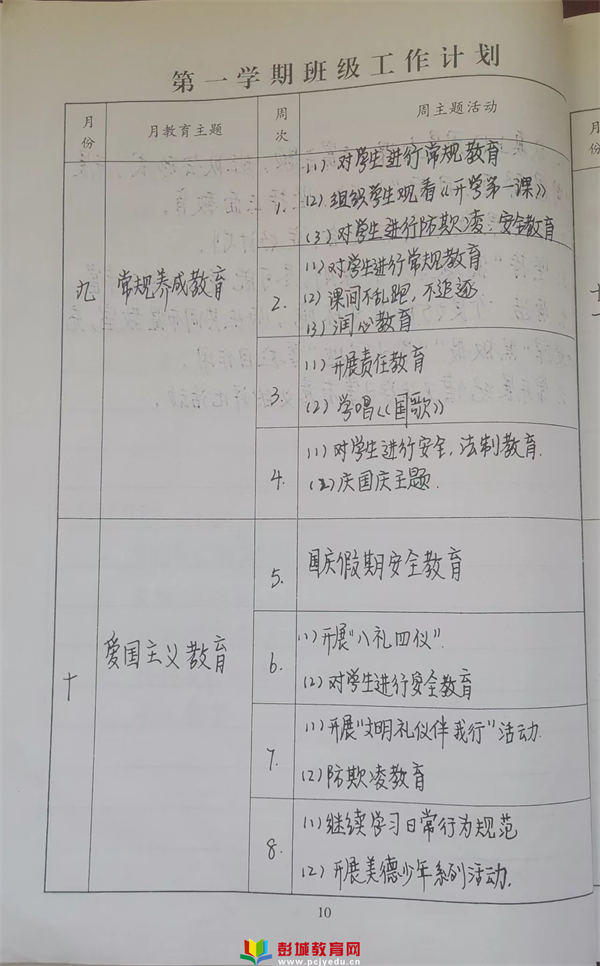 第一学期班级工作计划
月份 月教育主题 周次 周主题活动
九 常规养成教育
1. (1) 对学生进行常规教育
(2) 组织学生观看《开学第一课》
(3) 对学生进行防欺凌、安全教育
2. (1) 对学生进行常规教育
(2) 课间不乱跑,不追逐
(3) 润心教育
3. (1) 开展责任教育
(2) 学唱《国歌》
4. (1) 对学生进行安全,法制教育.
(2) 庆国庆主题.
十 爱国主义教育
5. 国庆假期安全教育
6. (1) 开展"八礼四仪".
(2) 对学生进行安全教育
7. (1) 开展"文明礼仪伴我行"活动.
(2) 防欺凌教育
8. (1) 继续学习日常行为规范
(2) 开展美德少年系列活动.
10
彭城教育网
www.pcjyedu.cn